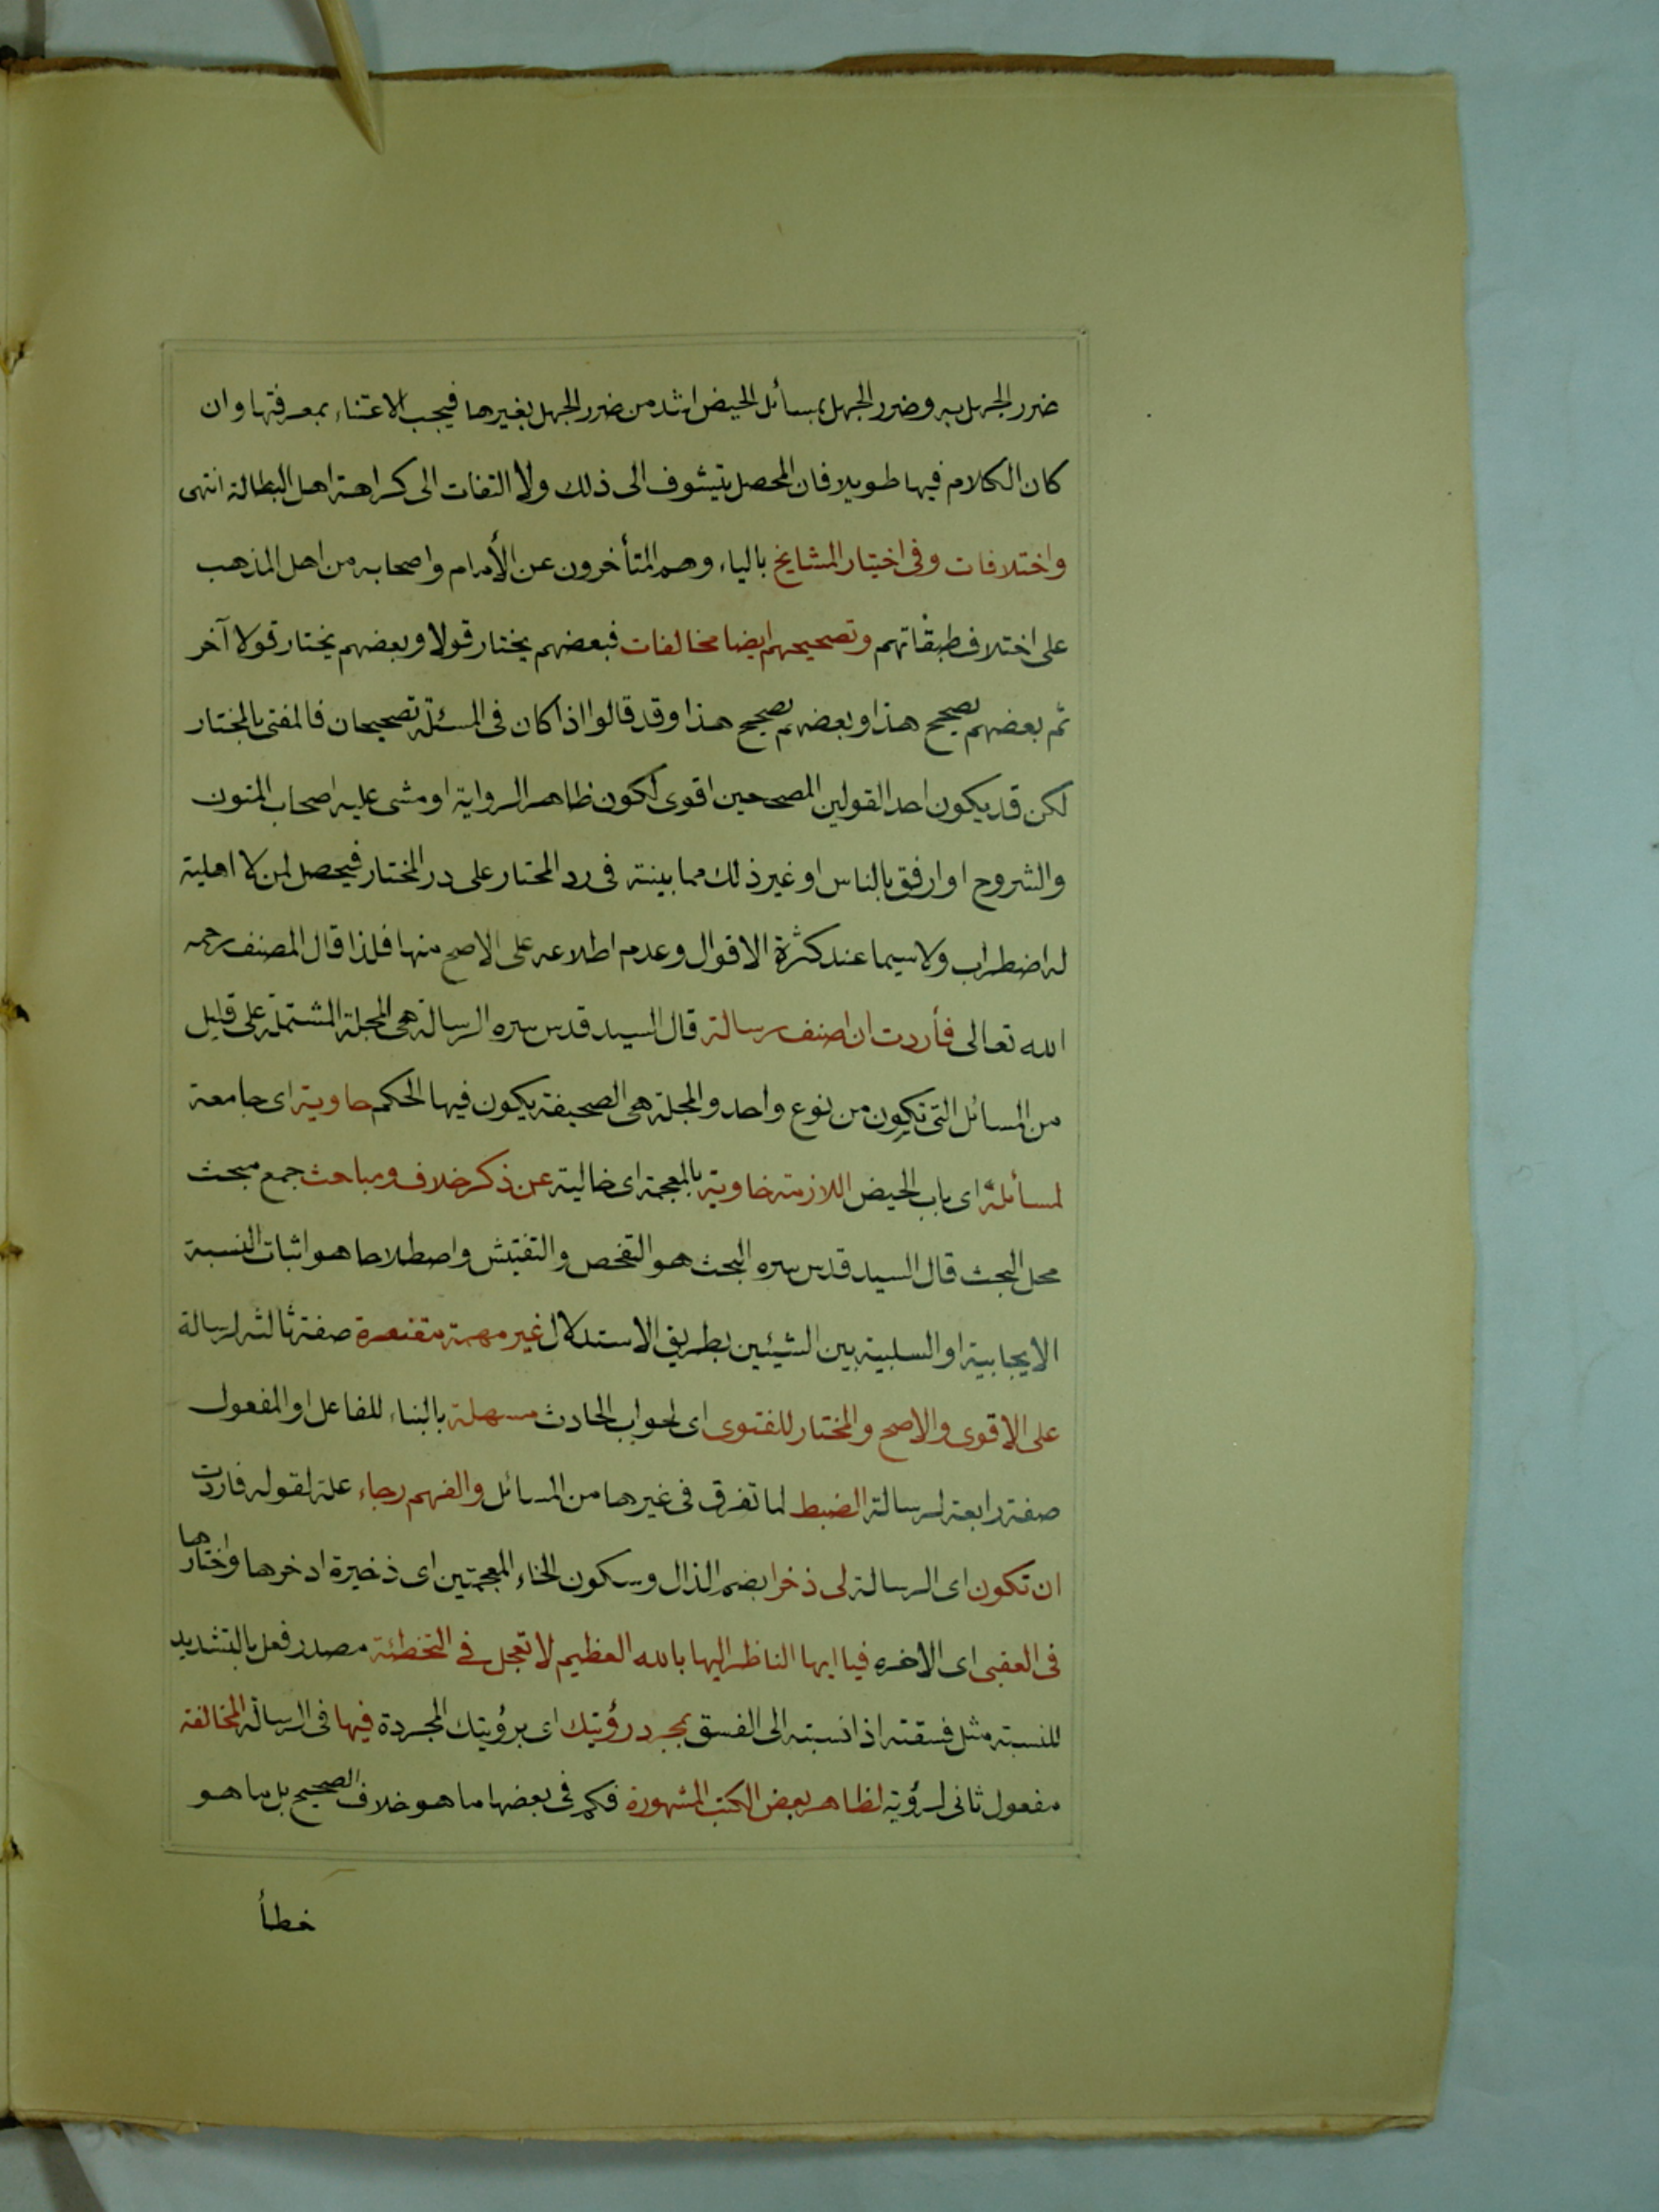 ضرر الجهل به وضرر الجهل بمسائل الحيض اشد من ضرر الجهل بغيرها فيجب الاعتناء بمعرفتها وان
كان الكلام فيها طويلا فان المحصل يتشوف الى ذلك ولا التفات الى كراهة اهل البطالة انتهى
واختلافات وفى اختيار المشايخ بالياء وهم المتأخرون عن الأمام واصحابه من اهل المذهب
على اختلاف طبقاتهم وتصحيحهم ايضا مخالفات فبعضهم يختار قولا وبعضهم يختار قولا آخر
ثم بعضهم يصحح هذا وبعضهم يصحح هذا وقد قالوا اذا كان فى المسئلة تصحيحان فالمفتى بالمختار
لكن قد يكون احد القولين المصححين اقوى لكون ظاهر الرواية او مشى عليه اصحاب المتون
والشروح او ارفق بالناس او غير ذلك مما بينته فى رد المحتار على در المختار فيحصل لمن لا اهلية
له اضطراب ولا سيما عند كثرة الاقوال وعدم اطلاعه على الاصح منها فلذا قال المصنف رحمه
الله تعالى فأردت ان اصنف رسالة قال السيد قدس سره الرسالة هى المجلة المشتملة على قليل
من المسائل التى تكون من نوع واحد والمجلة هى الصحيفة يكون فيها الحكم حاوية اى جامعة
لمسائله اى باب الحيض اللازمة خاوية بالمعجمة اى خالية عن ذكر خلاف ومباحث جمع مبحث
محل البحث قال السيد قدس سره البحث هو التفحص والتفتيش واصطلاحا هو اثبات النسبة
الايجابية او السلبية بين الشيئين بطريق الاستدلال غير مهمة مقتصرة صفة ثالثة لرسالة
على الاقوى والاصح والمختار للفتوى اى لجواب الحادث مسهلة بالبناء للفاعل او المفعول
صفة رابعة لرسالة الضبط لما تفرق فى غيرها من المسائل والفهم رجاء علة لقوله فاردت
ان تكون اى الرسالة لى ذخرا بضم الذال وسكون الخاء المعجمتين اى ذخيرة ادخرها واختارها
فى العقبى اى الاخره فيا ايها الناظر اليها بالله العظيم لا تعجل فى التخطئة مصدر فعل بالتشديد
للنسبة مثل فسقته اذا نسبته الى الفسق بمجرد رؤيتك اى برؤيتك المجردة فيها فى الرسالة المخالفة
مفعول ثانى لرؤية لظاهر بعض الكتب المشهورة فكم فى بعضها ما هو خلاف الصحيح بل ما هو
خطأ